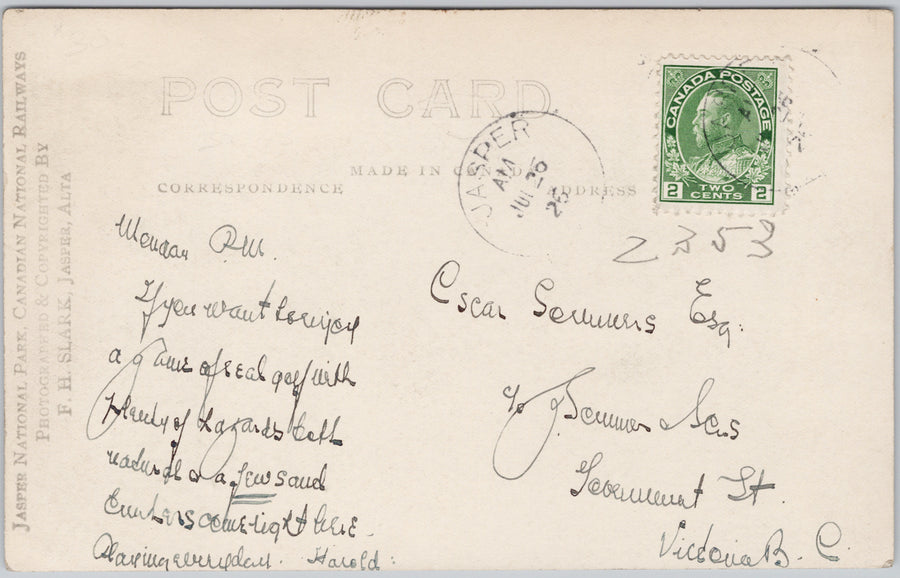 POST CARD
MADE IN CANADA
CORRESPONDENCE
ADDRESS
JASPER NATIONAL PARK, CANADIAN NATIONAL RAILWAYS
PHOTOGRAPHED & COPYRIGHTED BY
F. H. SLARK, JASPER, ALTA
JASPER
AM
JUL
26
CANADA POSTAGE
2 TWO CENTS 2
2353
Monday P.M.
If you want to enjoy
a game of real golf with
plenty of hazards both
natural & a few sand
bunkers come right here.
Playing everyday. Harold.
Oscar Sommers Esq.
c/o J Sommer & Sons
Government St.
Victoria B. C.